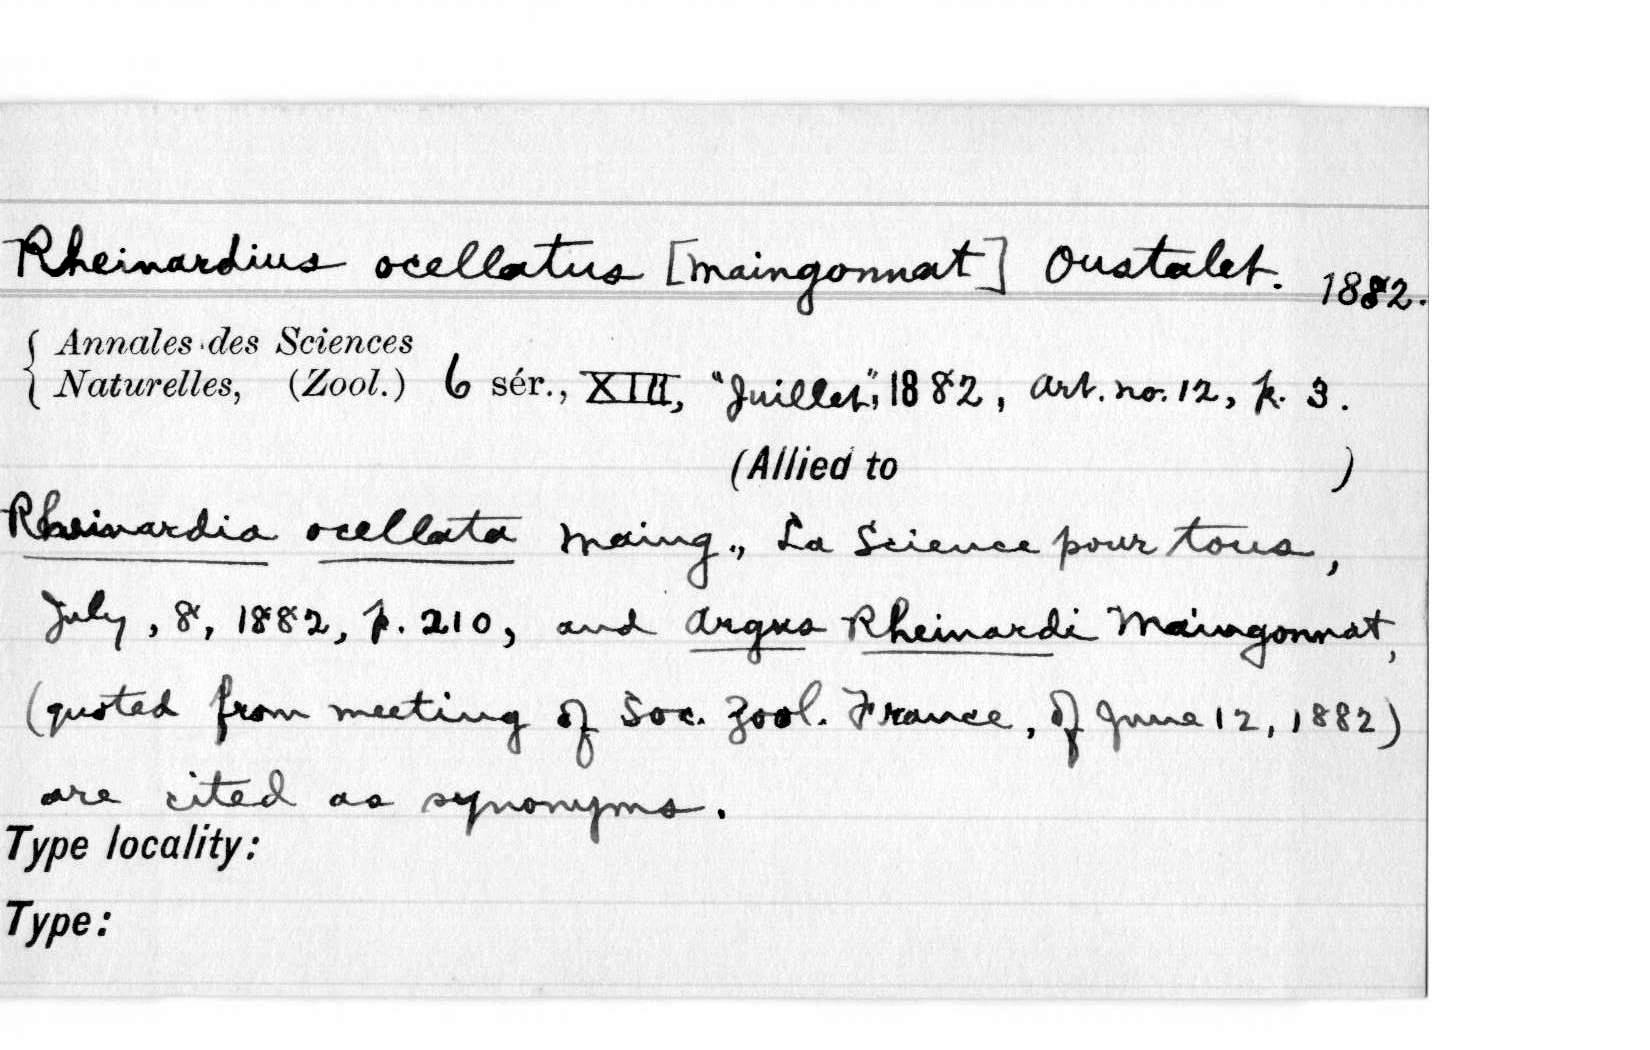 Rheinardius ocellatus [Maingonnat] Oustalet. 1882.
Annales des Sciences
Naturelles, (Zool.) 6 sér., XIII, "Juillet", 1882, Art. no. 12, p. 3.
(Allied to )
Rheinardia ocellata Maing., La Science pour tous,
July, 8, 1882, p. 210, and Argus Rheinardi Maingonnat,
(quoted from meeting of Soc. Zool. France, of June 12, 1882)
are cited as synonyms.
Type locality:
Type: